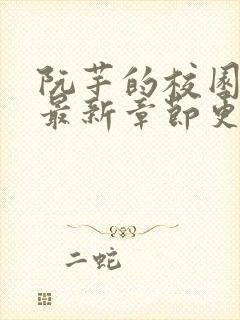 阮芋的校园
最新章节更
二蛇